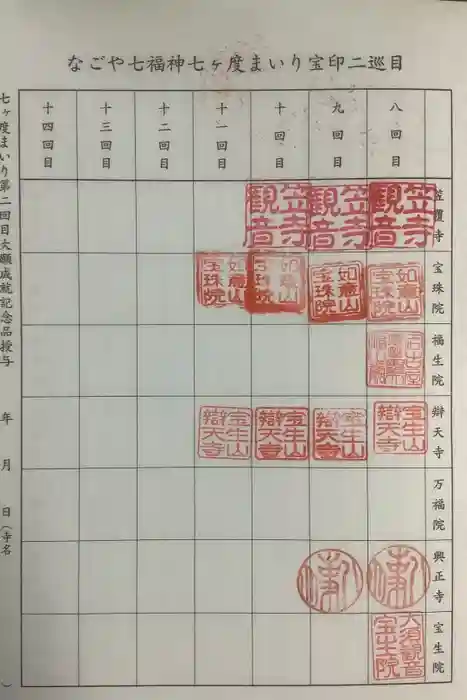 なごや七福神七ヶ度まいり宝印二巡目
八回目
九回目
十回目
十一回目
十二回目
十三回目
十四回目
笠覆寺
笠寺観音
笠寺観音
笠寺観音
宝珠院
如意山宝珠院
如意山宝珠院
如意山宝珠院
如意山宝珠院
福生院
辯天寺
宝生山辯天寺
宝生山辯天寺
宝生山辯天寺
宝生山辯天寺
万福院
興正寺
宝生院
大須観音宝生院
七ヶ度まいり第二回目大願成就記念品授与　年　月　日（寺名　）